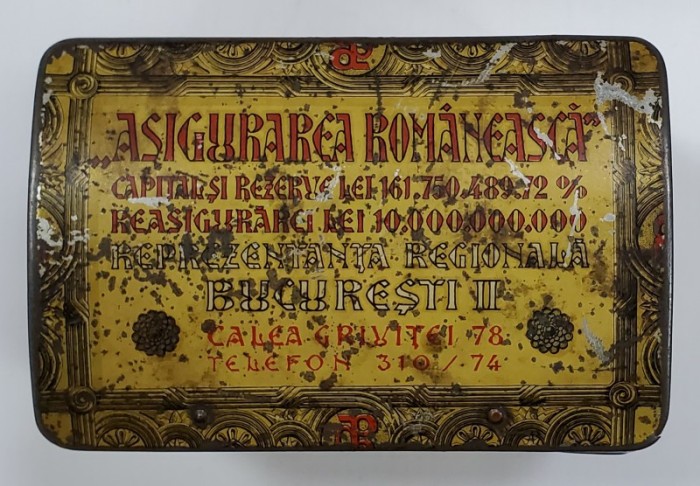 „ASIGURAREA ROMÂNEASCĂ”
CAPITAL ȘI REZERVE LEI 161.750.489.72 %
REASIGURĂRCI LEI 10.000.000.000
REPREZENTANȚA REGIONALĂ
BUCUREȘTI II
CALEA GRIVIȚEI 78
TELEFON 310/74
AR